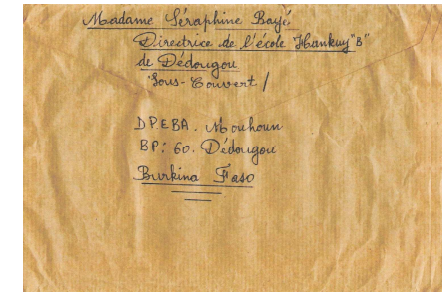 Madame Séraphine Bayé
Directrice de l'école Hankuy "B"
de Dédougou
"Sous-Couvert /
DPEBA. Mouhoun
BP: 60. Dédougou
Burkina Faso